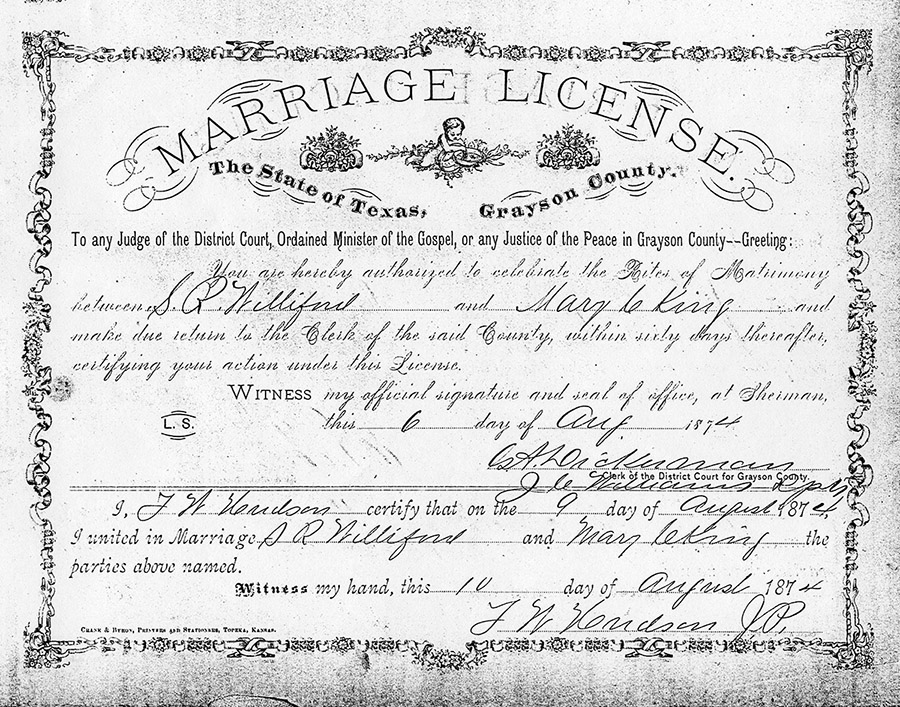 MARRIAGE LICENSE.
The State of Texas, Grayson County.
To any Judge of the District Court, Ordained Minister of the Gospel, or any Justice of the Peace in Grayson County--Greeting:
You are hereby authorized to celebrate the Rites of Matrimony
between S. R. Williford and Mary C King and
make due return to the Clerk of the said County, within sixty days thereafter,
certifying your action under this License.
WITNESS my official signature and seal of office, at Sherman,
L. S.
this 6 day of Aug 1874
Dickerman
Clerk of the District Court for Grayson County.
J C Williams Dpty
I, J W Hudson certify that on the 9 day of August 1874,
I united in Marriage S R Williford and Mary C King the
parties above named.
Witness my hand, this 10 day of August 1874
J W Hudson J.P.
CRANE & BYRON, PRINTERS AND STATIONERS, TOPEKA, KANSAS.